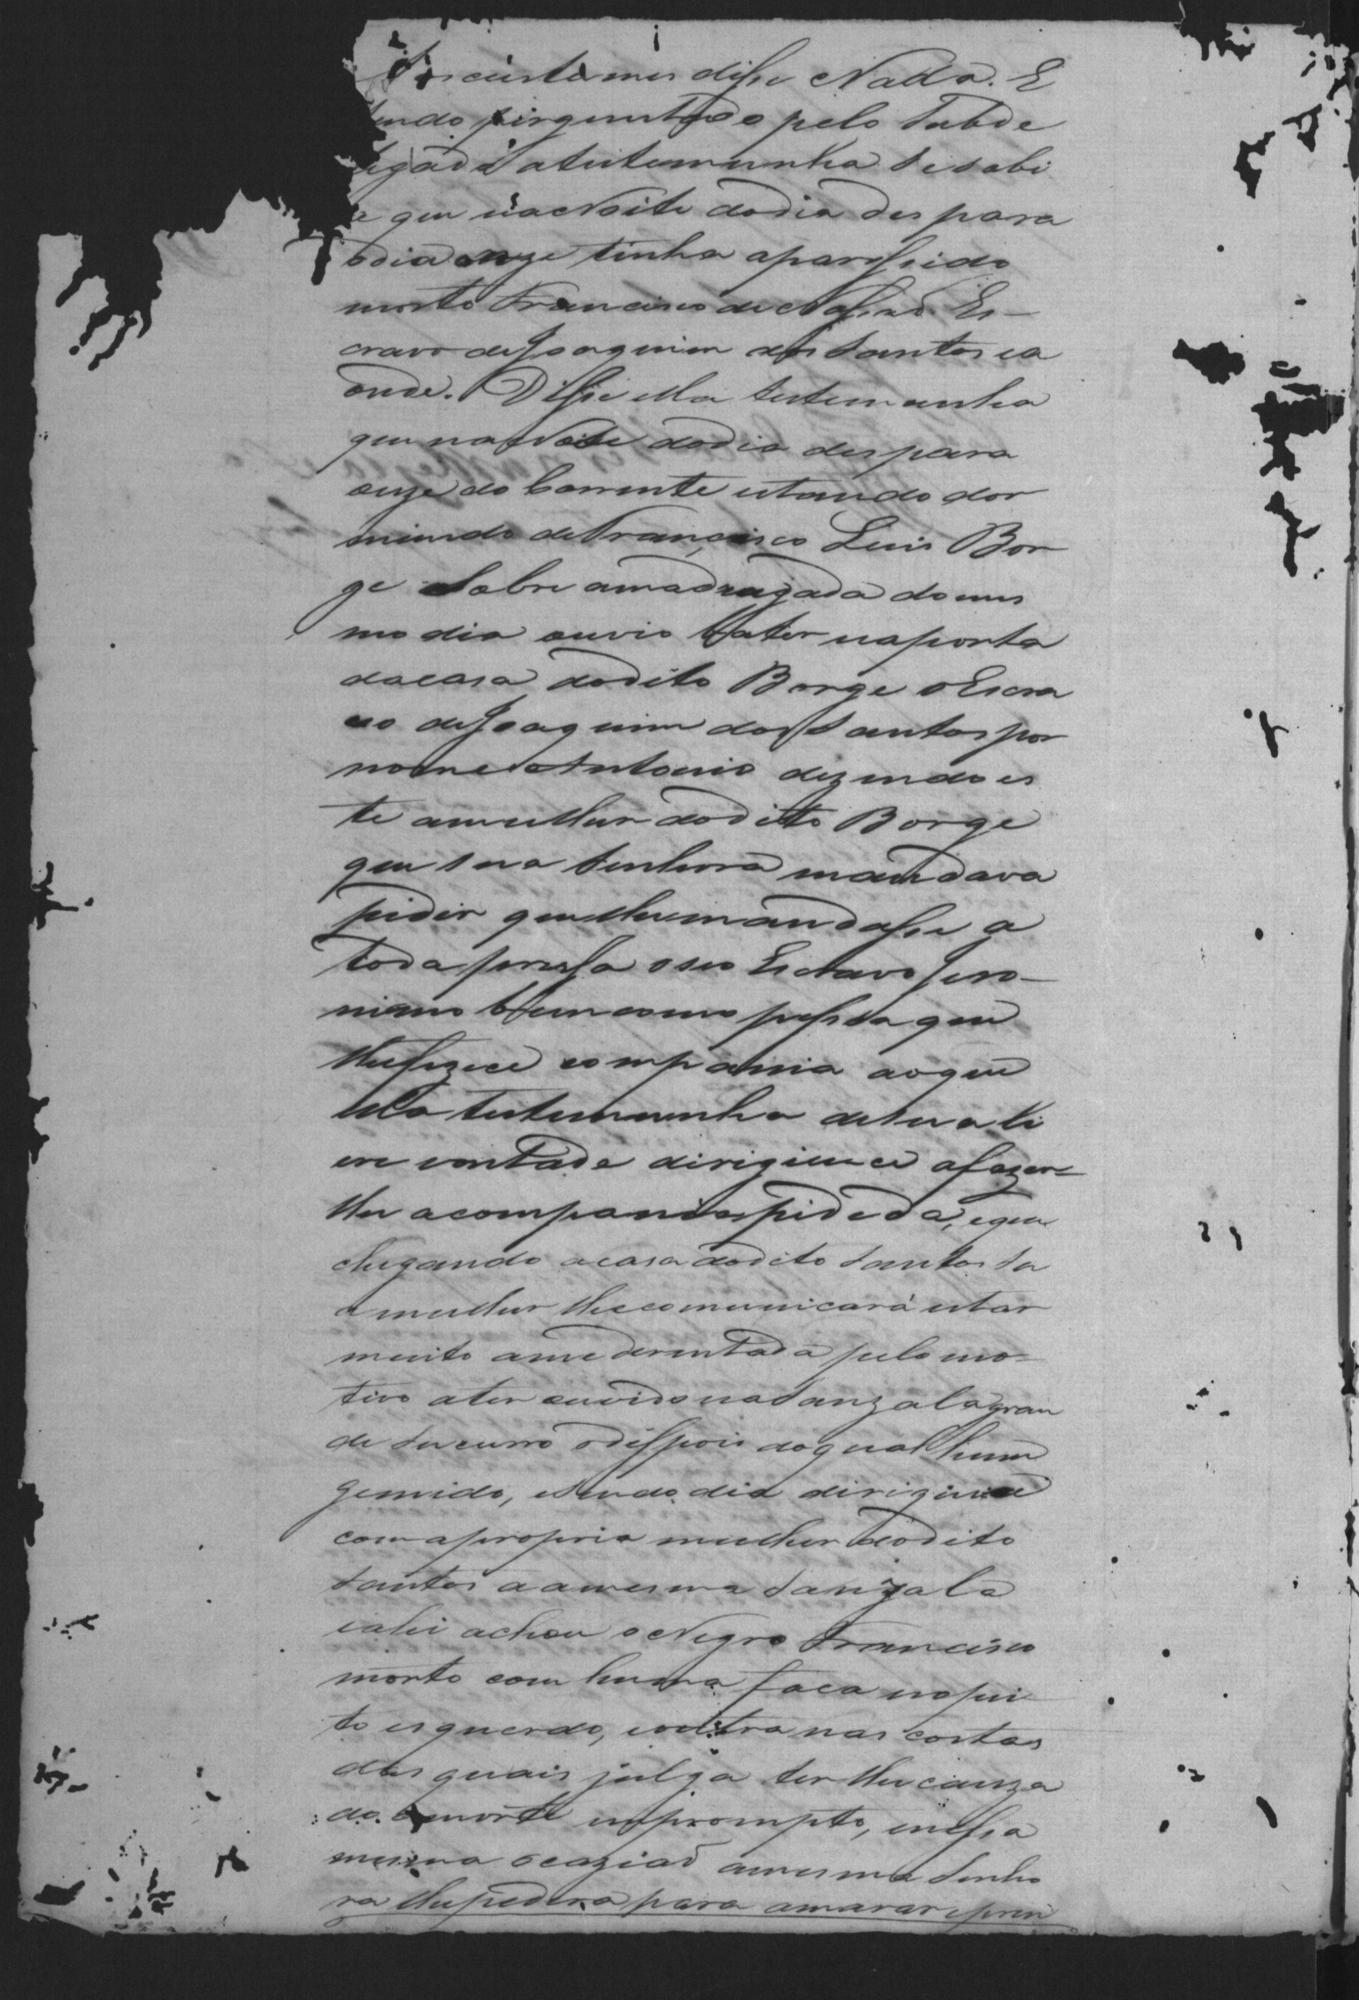 Aos custumes disse Nada. E
sendo pirguntado pelo Subde
legado a testemunha se sabi
a que na Noite do dia des para
o dia onze tinha aparessido
morto Francisco de Nassaõ Es-
cravo de Joaquim dos Santos e a
onde. Disse ella testemunha
que na Noite do dia des para
onze do Corrente estando dor
mindo de Francisco Luis Bor
ge sobre a madrugada do mes
mo dia ouvio bater na porta
da casa do dito Borge o Escra
vo de Joaquim dos Santos por
nome Antonio dizendo es
te a mulher do dito Borge
que sua Senhora mandava
pidir que lhe mandasse a
toda pressa o seo Escravo Jero-
nimo bem como pessoa que
lhe fizece compania ao que
ella testemunha de sua li
vre vontade dirigiu ce a fazer=
lhe a compania pidida, e que
chegando a casa do dito Santos su
a mulher lhe comunicará estar
muito amedrentada pelo mo-
tivo a ter ouvido na Sanzala gran
de sucurro e disspois do qual hum
gemido, e sendo dia dirigiu ce
com a propria mulher do dito
Santos a a mesma Sanzala
e ahi achou o Negro Francisco
morto com huma faca no pei
to esquerdo, e outra nas costas
das quais julga ter lhe cauza
do a morte inprompto, e nessa
mesma ocaziaõ a mesma Senho
ra lhe pedira para amarar e pren